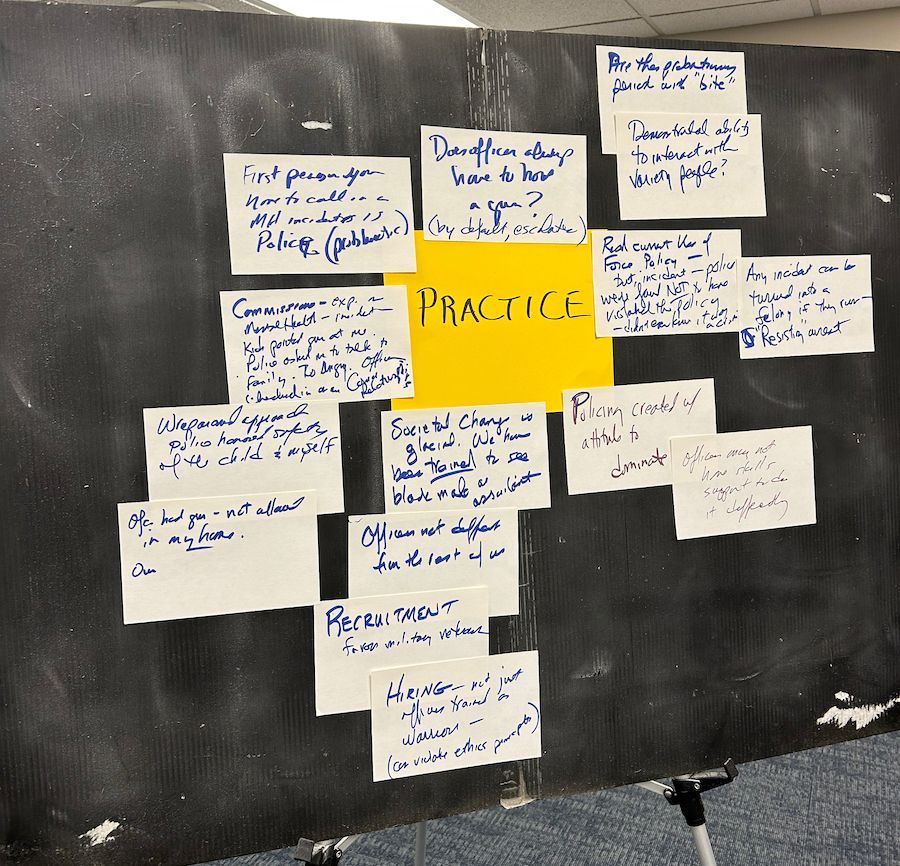 Are there probationary
period with "bite"
Demonstrated ability
to interact with
variety people?
Does officer always
have to have
a gun?
(by default, escalates)
First person you
have to call in a
MH incident is
Police (problematic)
PRACTICE
Read current Use of
Force Policy —
but, incident — police
were found NOT to have
violated the policy
— didn't even know it was
Any incident can be
turned into a
felony if they run —
"Resisting" arrest
Commission — exp. in
Mental Health — incident
Kids pointed gun at me.
Police asked me to talk to
family. Officer
in a
approach
Police honored safety
of the child & myself
Ofc. had gun — not allowed
in my home.
Our
Societal Change is
glacial. We have
been trained to see
black male as
assailant
Policing created w/
attitude to
dominate
Officers may not
have skills
support to do
it differently
Officers not different
from the rest of us
RECRUITMENT
favors military veterans
HIRING — not just
officers trained as
warriors —
(can violate ethics